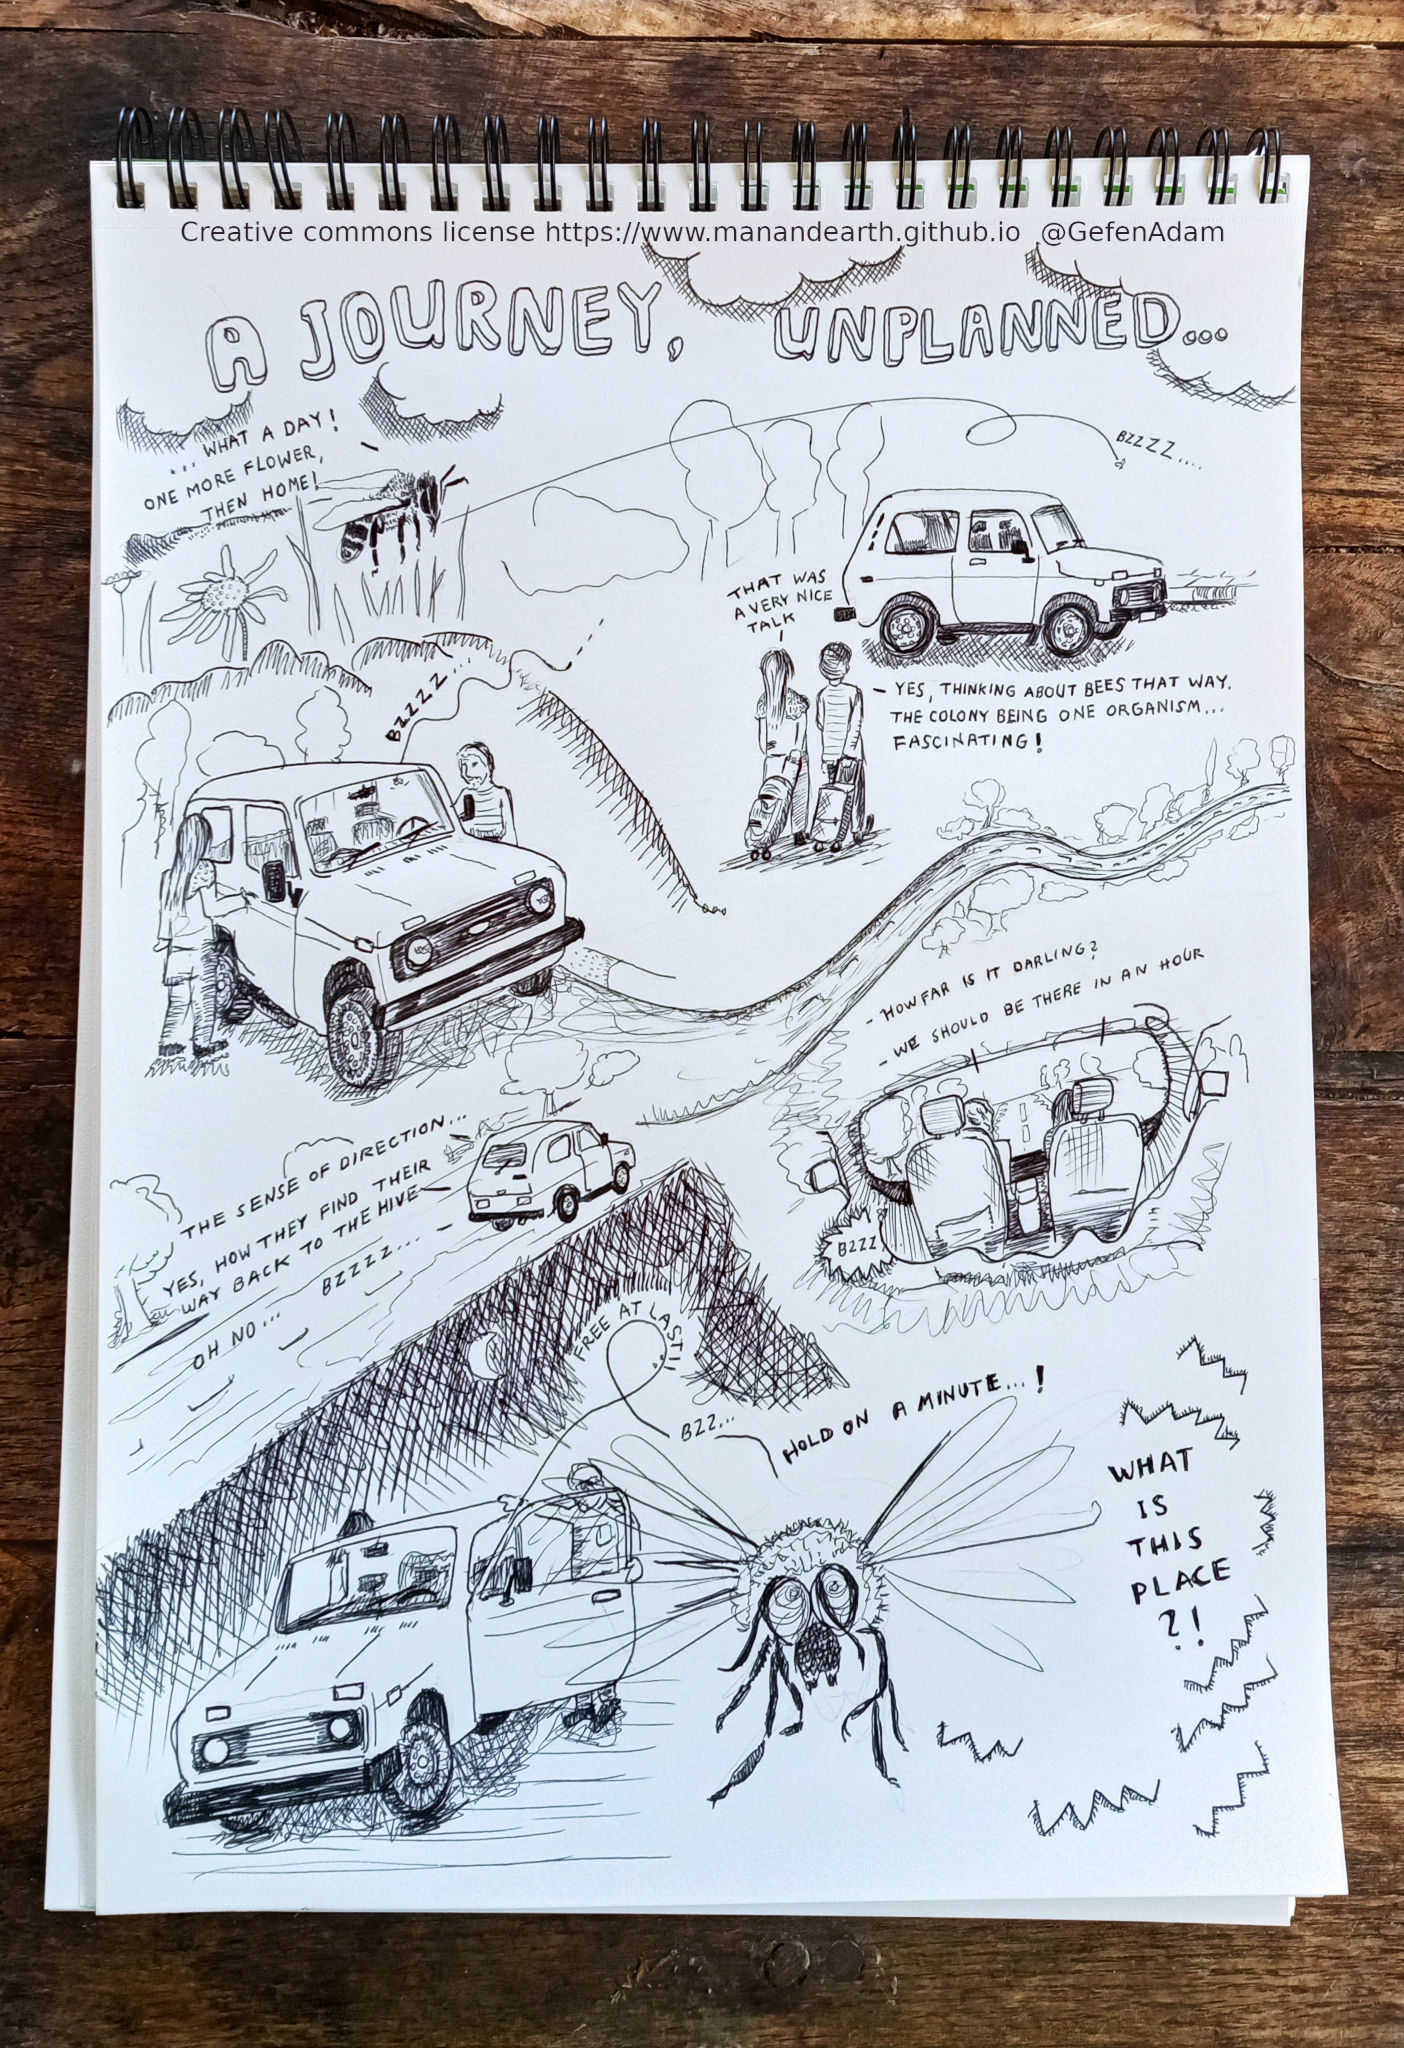 Creative commons license https://www.manandearth.github.io @GefenAdam
A JOURNEY, UNPLANNED...
... WHAT A DAY!
ONE MORE FLOWER,
THEN HOME!
BZZZZ....
THAT WAS
A VERY NICE
TALK
- YES, THINKING ABOUT BEES THAT WAY.
THE COLONY BEING ONE ORGANISM...
FASCINATING!
BZZZZ...
- HOW FAR IS IT DARLING?
- WE SHOULD BE THERE IN AN HOUR
BZZZ
THE SENSE OF DIRECTION...
YES, HOW THEY FIND THEIR
WAY BACK TO THE HIVE
BZZZZ...
OH NO...
FREE AT LAST!!
BZZ...
HOLD ON A MINUTE...!
WHAT
IS
THIS
PLACE
?!